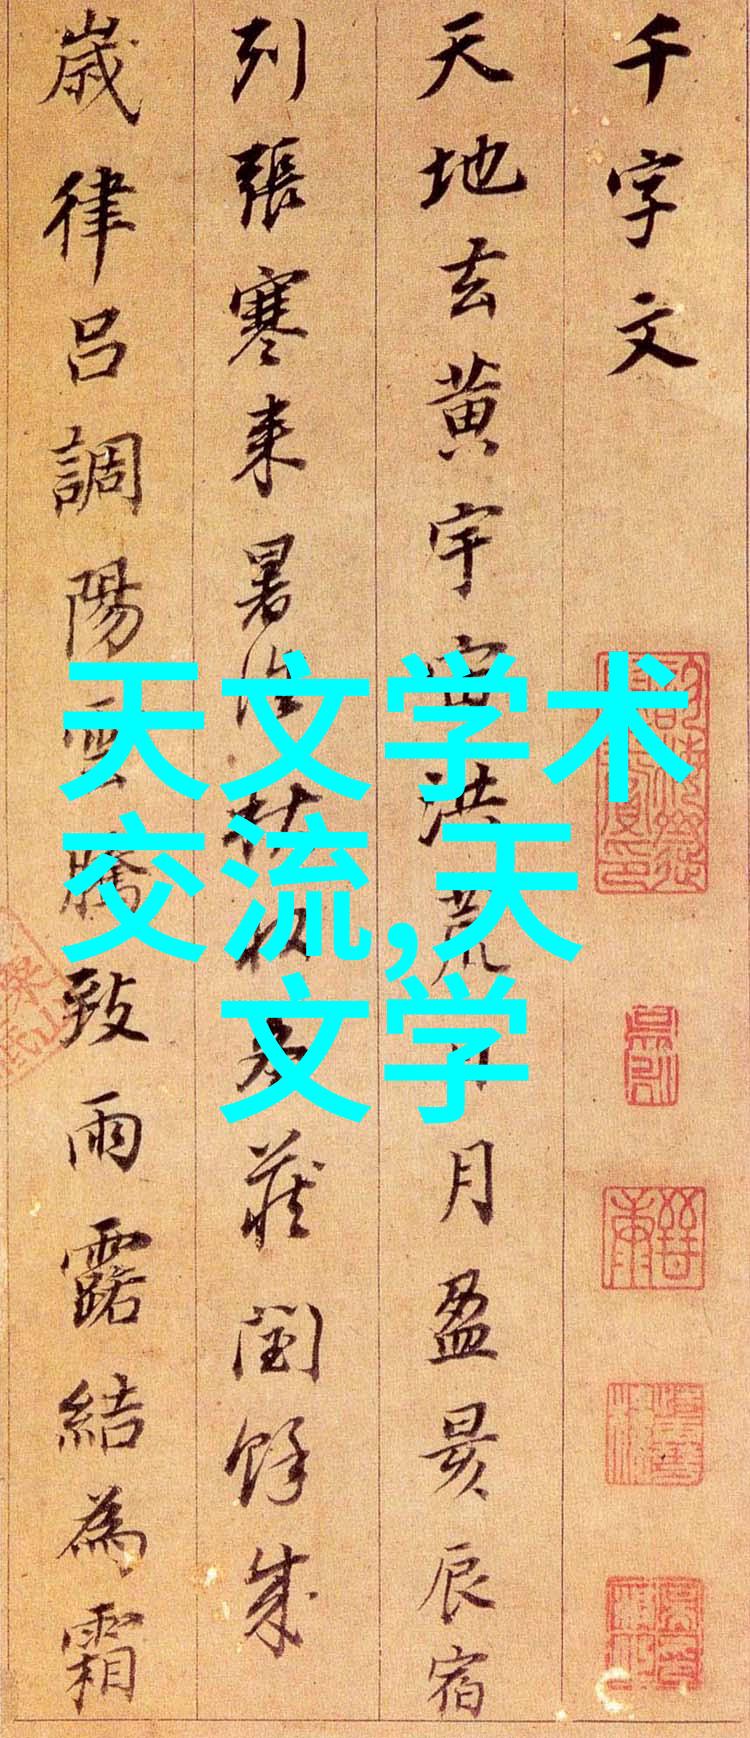 千字文
天地玄黄宇宙洪荒日月盈昃辰宿
列張寒来暑往秋收冬蔵閏餘成
歲律吕調陽雲騰致雨露結為霜
天文学术
交流,天
文学